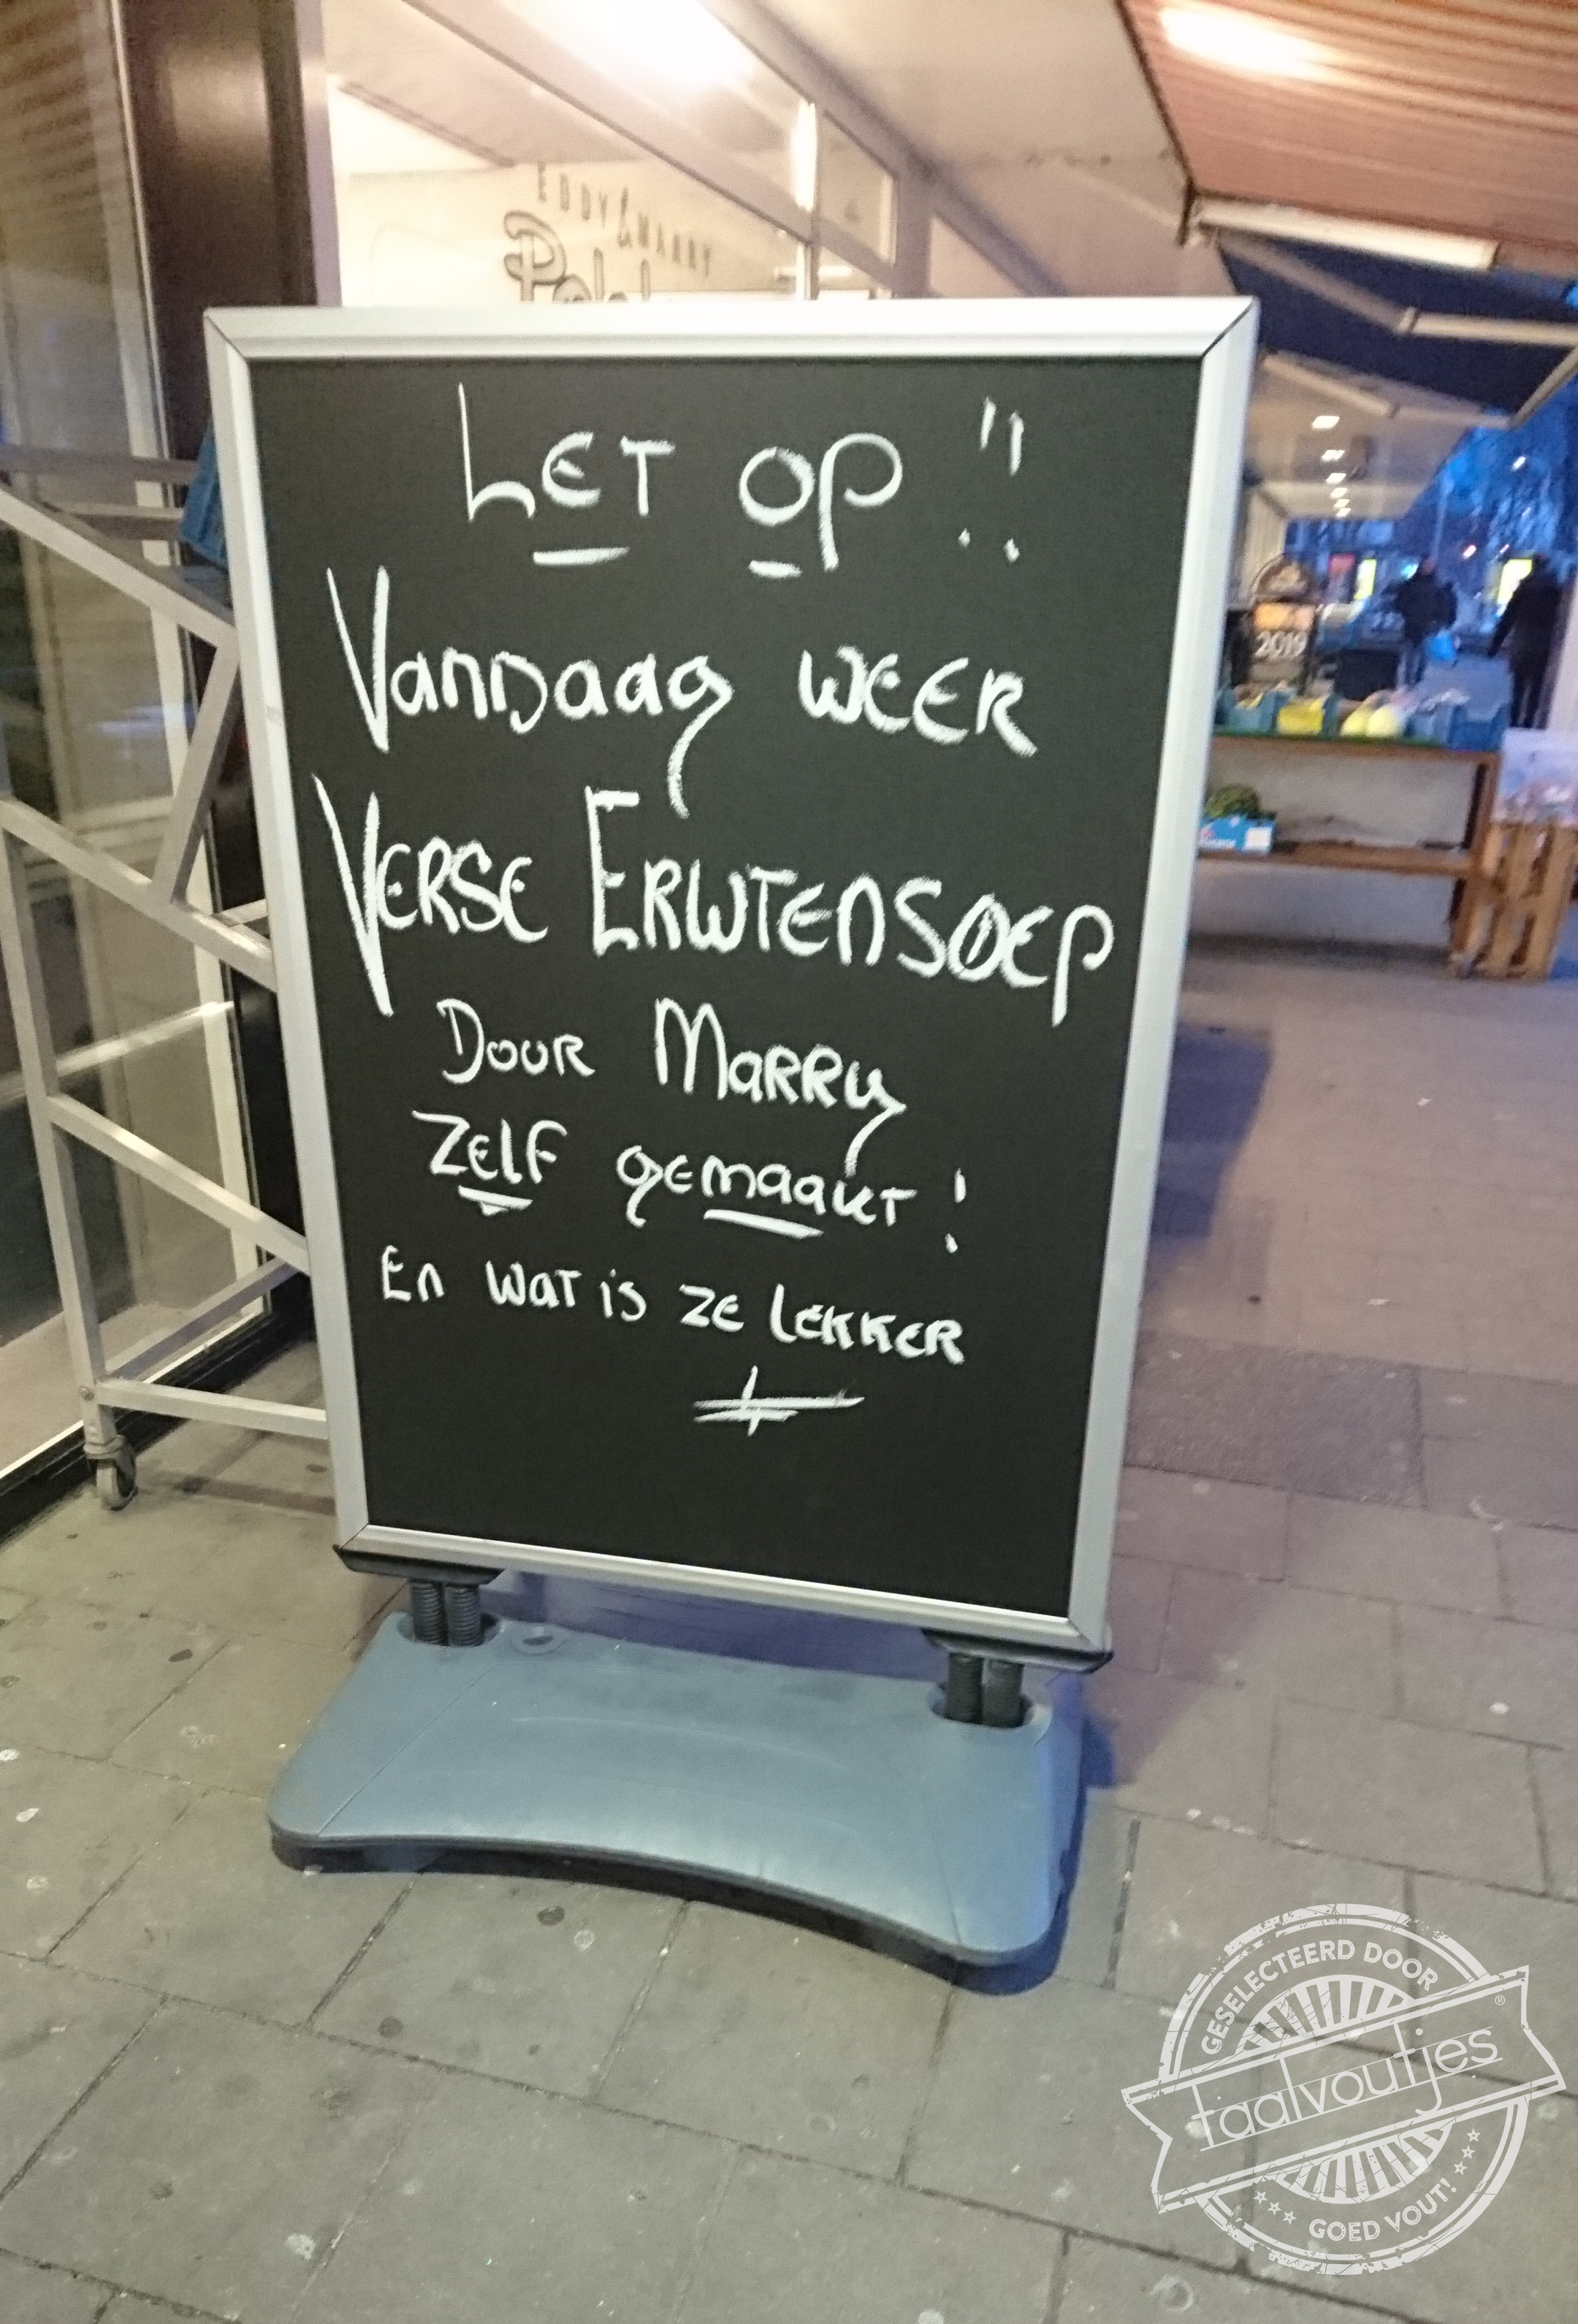 EDDY & MARRY
LET OP!!
Vandaag weer
Verse Erwtensoep
Door Marry
Zelf gemaakt!
En wat is ze lekker
2019
GESELECTEERD DOOR
taalvoutjes®
GOED VOUT!